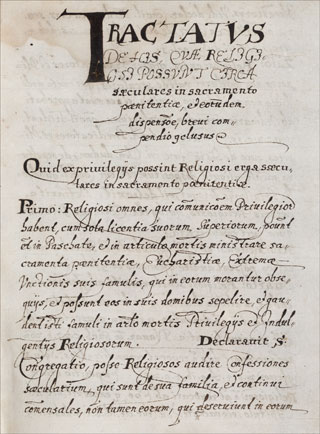 TRACTATVS
DE IIS, QVÆ RELIGI-
OSI POSSVNT CIRCA
sæculares in sacramento
pœnitentiæ, et eorundem
dispensõe, brevi com-
pendio
Quid ex privilegijs possint Religiosi erga sæcu-
lares in sacramento pœnitentiæ.
Primo: Religiosi omnes, qui comunicaõem Privilegior
habent, cum sola licentia suorum Superiorum, põunt
et in Paschate, et in articulo mortis ministrare sa-
cramenta pœnitentiæ, Eucharistiæ, Extremæ
Unctionis suis famulis, qui in eorum morantur obse-
quijs, et possunt eos in suis domibus sepelire, et gau-
dent isti famuli in artlo mortis Privilegijs et Indul-
gentijs Religiosorum. Declaravit S.
Congregatio, posse Religiosos audire Confessiones
sæcularium, qui sunt de sua familia, et continui
comensales, non tamen eorum, qui deserviunt in eorum